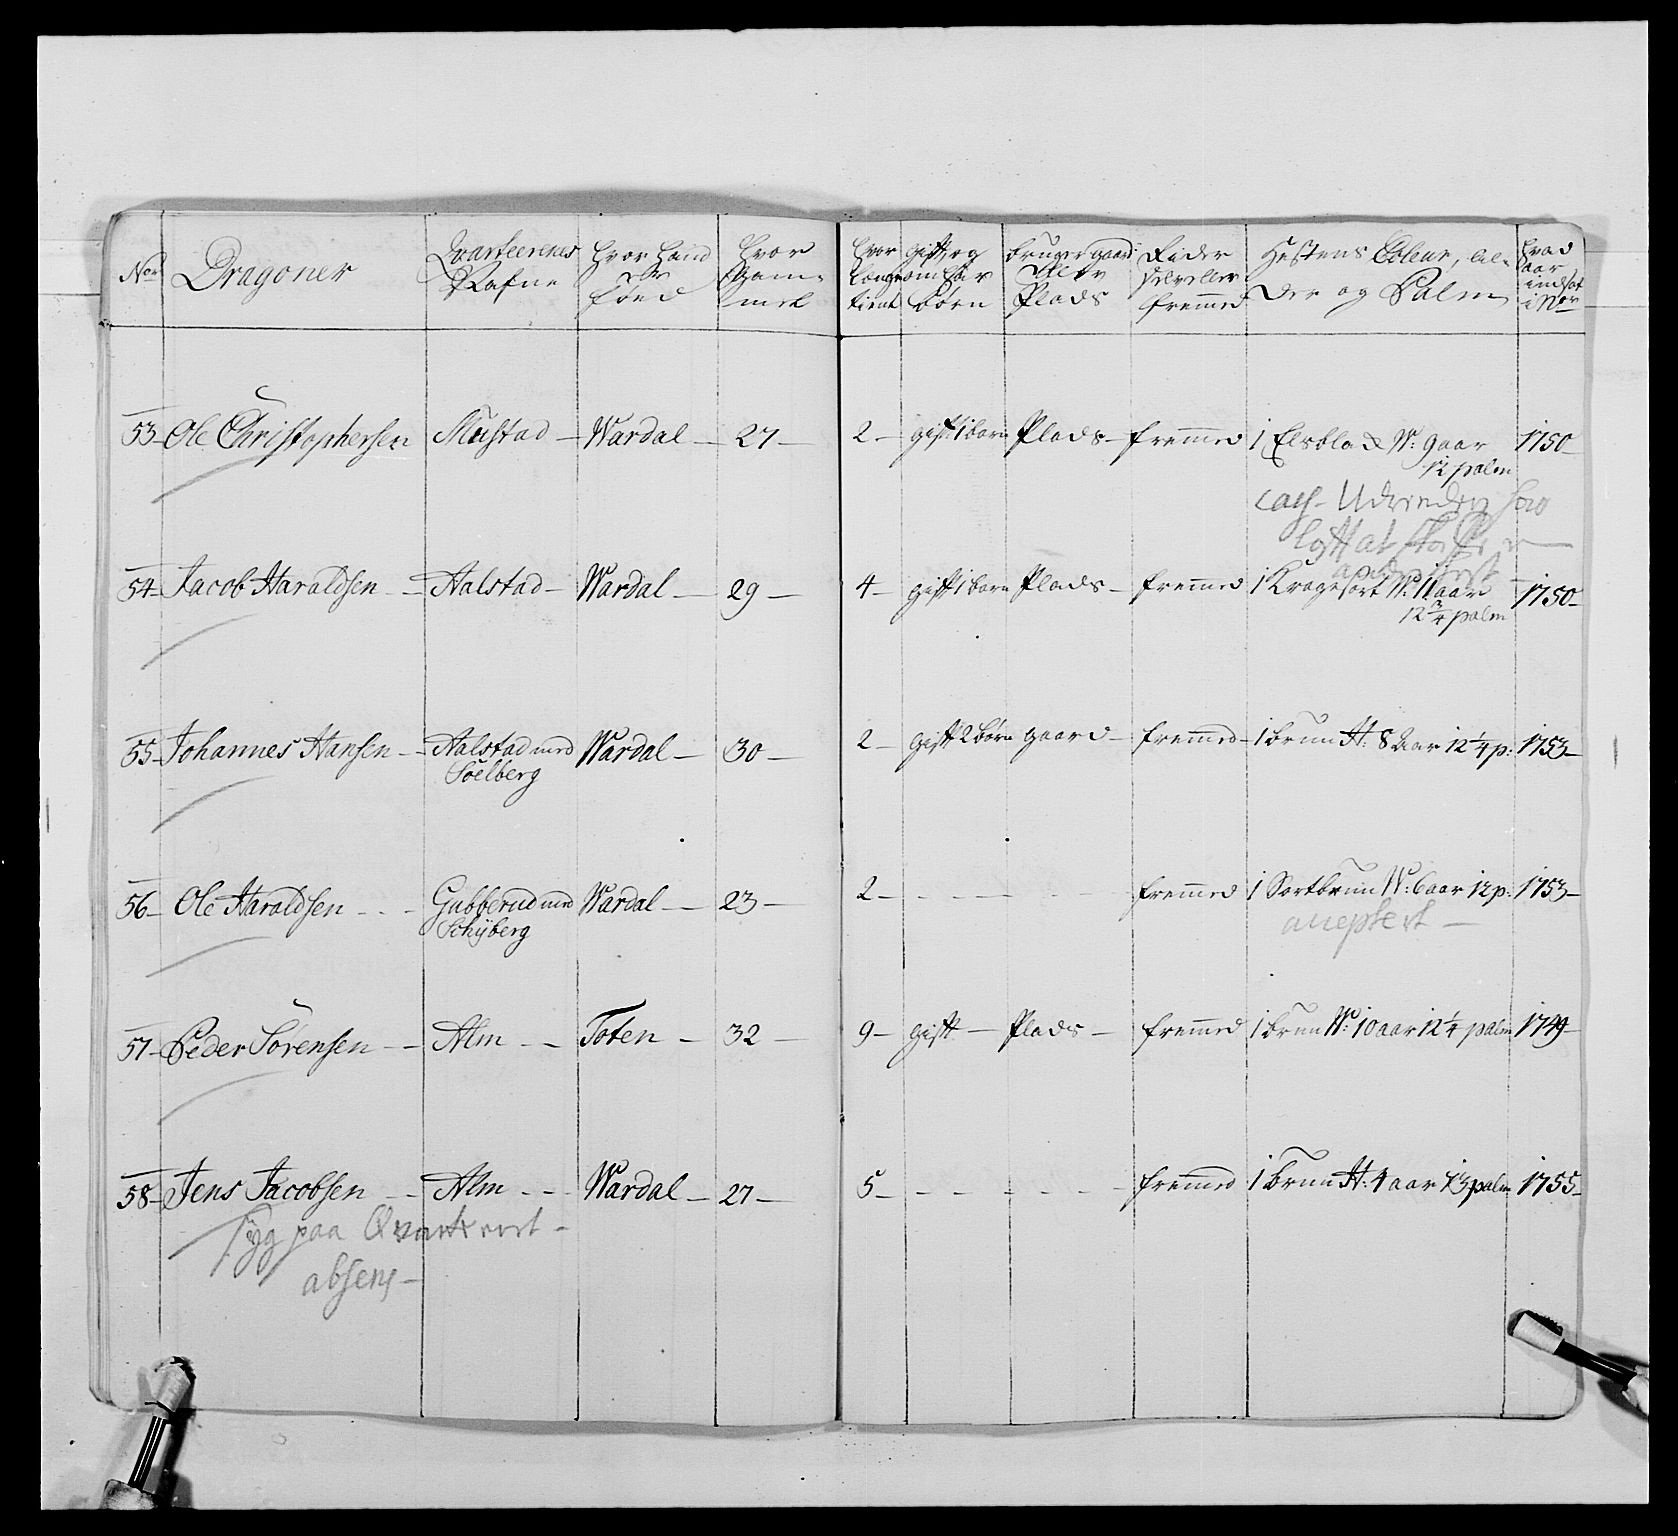 No: Dragoner Qvarteerenes Nafne hvor hand er föed hvor Gam= mel hvor længe tient gift, og om har börn bruger gaard eller Plads Rider selv eller fremmed Hestens Coleur, Al= der og Palm hvad aar indsat i No:
53 Ole Christophersen Mustad Wardal 27 2 gift 1 barn Plads fremmed 1 Elsbla W: 9 aar 12 palm 1750
cass. Udrinder har
54 Jacob Haraldsen Aalstad Wardal 29 4 gift 1 barn Plads fremmed 1 Kragesort W: 11 aar 12 3/4 palm 1750
55 Johannes Hansen Aalstad med Söelberg Wardal 30 2 gift 2 börn gaard fremmed 1 brun H: 8 Aar 12 1/4 p: 1753
56 Ole Haraldsen Gubberud med Schÿberg Wardal 23 2 fremmed 1 Sortbrun W: 6 aar 12 p: 1753
accepteret
57 Peder Sörensen Alm Toten 32 9 gift Plads fremmed 1 brun W: 10 aar 12 1/4 palm 1749
58 Jens Jacobsen Alm Wardal 27 5 fremmed 1 brun H: 4 aar 13 palm 1755
syg paa Qvarteret
absens